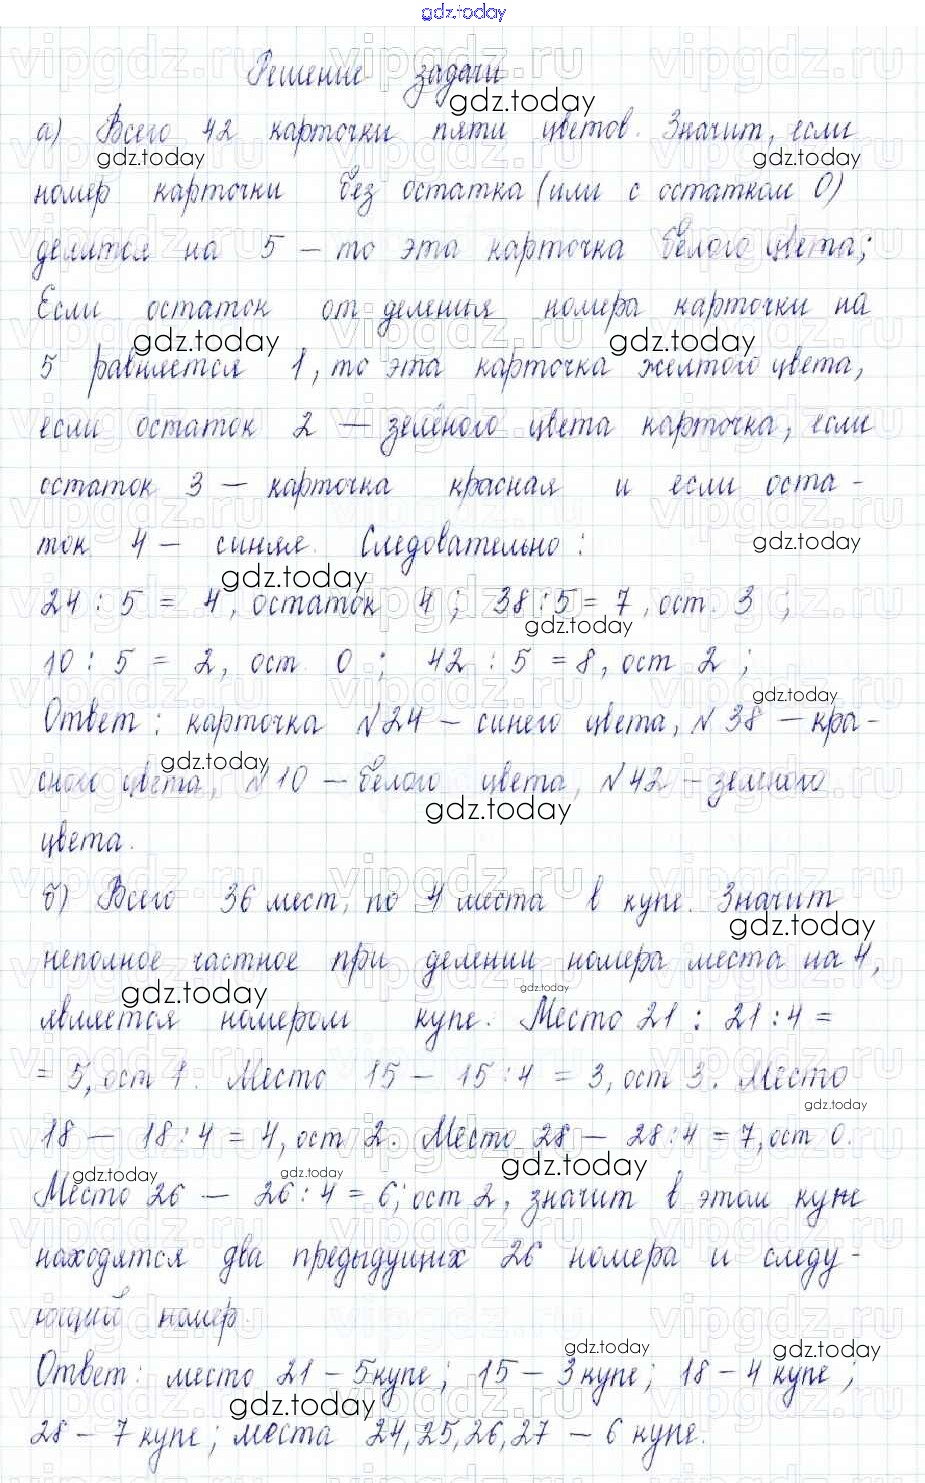 gdz.today
Решение задачи
а) Всего 42 карточки пяти цветов. Значит, если
номер карточки без остатка (или с остатком 0)
делится на 5 – то эта карточка белого цвета;
Если остаток от деления номера карточки на
5 равняется 1, то эта карточка желтого цвета,
если остаток 2 – зелёного цвета карточка, если
остаток 3 – карточка красная и если оста-
ток 4 – синяя. Следовательно:
24 : 5 = 4, остаток 4; 38 : 5 = 7, ост. 3;
10 : 5 = 2, ост. 0; 42 : 5 = 8, ост. 2;
Ответ: карточка №24 – синего цвета, №38 – кра-
сного цвета, №10 – белого цвета, №42 – зеленого
цвета.
б) Всего 36 мест, по 4 места в купе. Значит
неполное частное при делении номера места на 4,
является номером купе. Место 21 : 21 : 4 =
= 5, ост 1. Место 15 – 15 : 4 = 3, ост 3. Место
18 – 18 : 4 = 4, ост 2. Место 28 – 28 : 4 = 7, ост 0.
Место 26 – 26 : 4 = 6; ост 2, значит в этом купе
находятся два предыдущих 26 номера и следу-
ющий номер.
Ответ: место 21 – 5 купе; 15 – 3 купе; 18 – 4 купе;
28 – 7 купе; места 24, 25, 26, 27 – 6 купе.